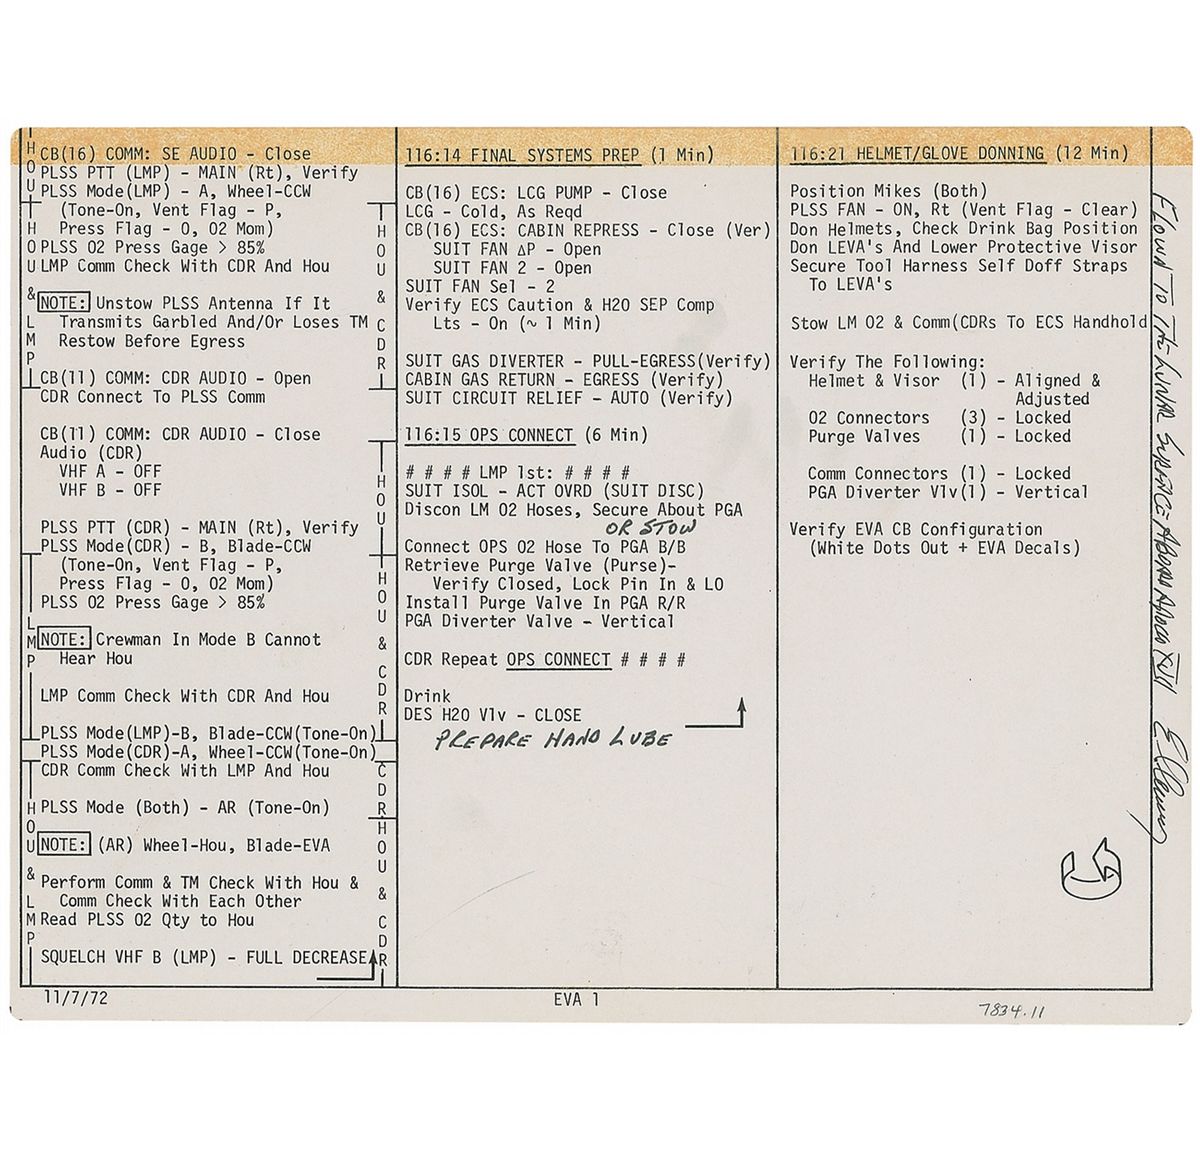 CB(16) COMM: SE AUDIO - Close
PLSS PTT (LMP) - MAIN (Rt), Verify
PLSS Mode(LMP) - A, Wheel-CCW
(Tone-On, Vent Flag - P,
Press Flag - O, O2 Mom)
PLSS O2 Press Gage > 85%
LMP Comm Check With CDR And Hou
NOTE: Unstow PLSS Antenna If It
Transmits Garbled And/Or Loses TM
Restow Before Egress
CB(11) COMM: CDR AUDIO - Open
CDR Connect To PLSS Comm
CB(11) COMM: CDR AUDIO - Close
Audio (CDR)
VHF A - OFF
VHF B - OFF
PLSS PTT (CDR) - MAIN (Rt), Verify
PLSS Mode(CDR) - B, Blade-CCW
(Tone-On, Vent Flag - P,
Press Flag - O, O2 Mom)
PLSS O2 Press Gage > 85%
NOTE: Crewman In Mode B Cannot
Hear Hou
LMP Comm Check With CDR And Hou
PLSS Mode(LMP)-B, Blade-CCW(Tone-On)
PLSS Mode(CDR)-A, Wheel-CCW(Tone-On)
CDR Comm Check With LMP And Hou
PLSS Mode (Both) - AR (Tone-On)
NOTE: (AR) Wheel-Hou, Blade-EVA
Perform Comm & TM Check With Hou &
Comm Check With Each Other
Read PLSS O2 Qty to Hou
SQUELCH VHF B (LMP) - FULL DECREASE
HOU
HOU & LMP
LMP
HOU & LMP
HOU & CDR
HOU
HOU & CDR
CDR
HOU & CDR
116:14 FINAL SYSTEMS PREP (1 Min)
CB(16) ECS: LCG PUMP - Close
LCG - Cold, As Reqd
CB(16) ECS: CABIN REPRESS - Close (Ver)
SUIT FAN ΔP - Open
SUIT FAN 2 - Open
SUIT FAN Sel - 2
Verify ECS Caution & H2O SEP Comp
Lts - On (~ 1 Min)
SUIT GAS DIVERTER - PULL-EGRESS(Verify)
CABIN GAS RETURN - EGRESS (Verify)
SUIT CIRCUIT RELIEF - AUTO (Verify)
116:15 OPS CONNECT (6 Min)
# # # # LMP 1st: # # # #
SUIT ISOL - ACT OVRD (SUIT DISC)
Discon LM O2 Hoses, Secure About PGA
OR STOW
Connect OPS O2 Hose To PGA B/B
Retrieve Purge Valve (Purse)-
Verify Closed, Lock Pin In & LO
Install Purge Valve In PGA R/R
PGA Diverter Valve - Vertical
CDR Repeat OPS CONNECT # # # #
Drink
DES H2O Vlv - CLOSE
PREPARE HAND LUBE
116:21 HELMET/GLOVE DONNING (12 Min)
Position Mikes (Both)
PLSS FAN - ON, Rt (Vent Flag - Clear)
Don Helmets, Check Drink Bag Position
Don LEVA's And Lower Protective Visor
Secure Tool Harness Self Doff Straps
To LEVA's
Stow LM O2 & Comm(CDRs To ECS Handhold
Verify The Following:
Helmet & Visor (1) - Aligned &
Adjusted
O2 Connectors (3) - Locked
Purge Valves (1) - Locked
Comm Connectors (1) - Locked
PGA Diverter Vlv(1) - Vertical
Verify EVA CB Configuration
(White Dots Out + EVA Decals)
Flown To The Lunar Surface Aboard Apollo XVII
11/7/72
EVA 1
7834.11